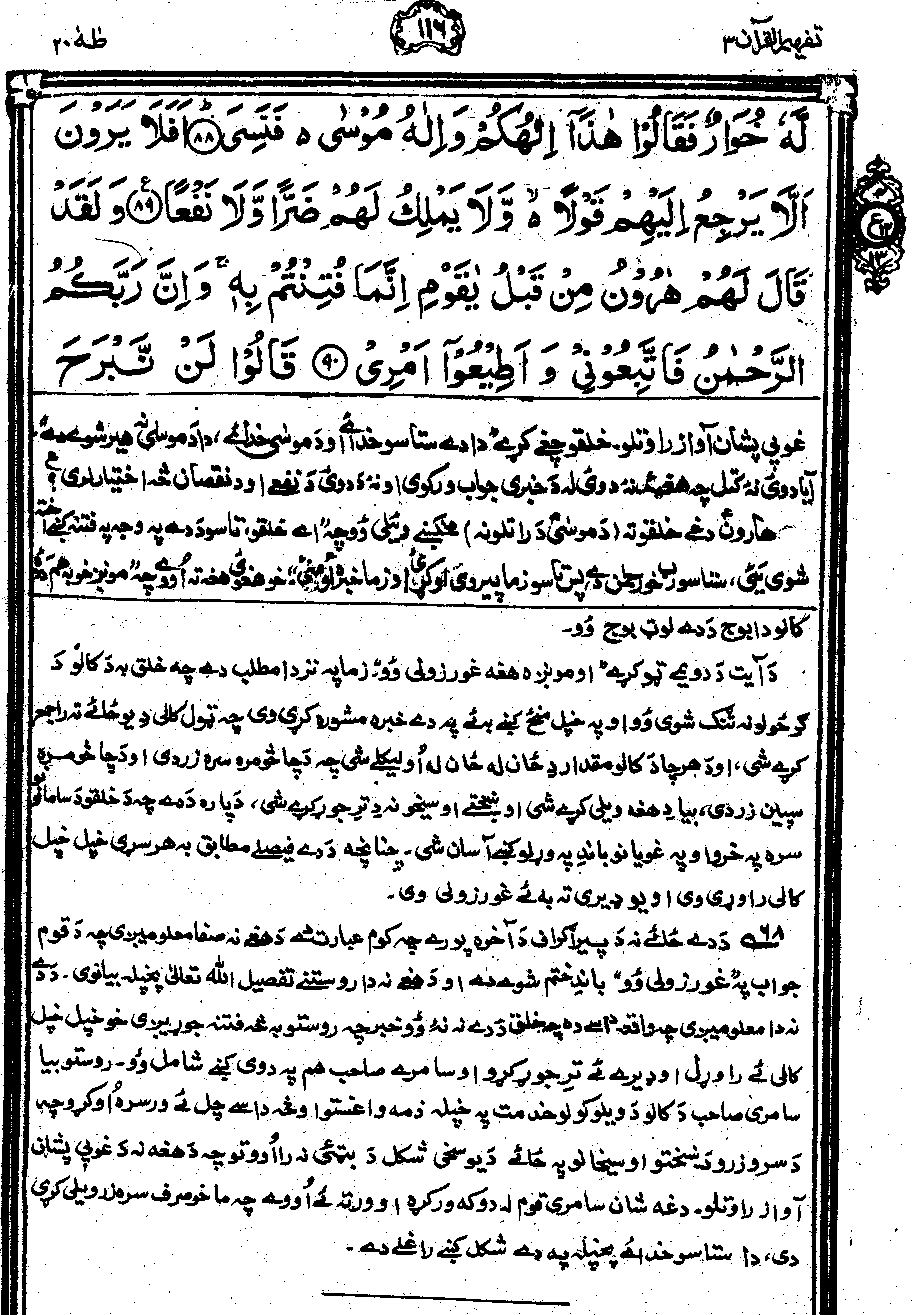 تفهيم القرآن ۳
۱۱۶
طٰهٰ ۲۰
لَّهٗ خُوَارٌ فَقَالُوْا هٰذَآ اِلٰهُكُمْ وَاِلٰهُ مُوْسٰى ۵ فَنَسِیَ ﴿۸۸﴾ اَفَلَا يَرَوْنَ
اَلَّا يَرْجِعُ اِلَيْهِمْ قَوْلًا ۵ وَّلَا يَمْلِكُ لَهُمْ ضَرًّا وَّلَا نَفْعًا ﴿۸۹﴾ وَلَقَدْ
قَالَ لَهُمْ هٰرُوْنُ مِنْ قَبْلُ يٰقَوْمِ اِنَّمَا فُتِنْتُمْ بِهٖ وَاِنَّ رَبَّكُمُ
الرَّحْمٰنُ فَاتَّبِعُوْنِيْ وَ اَطِيْعُوْٓا اَمْرِىْ ﴿۹۰﴾ قَالُوْا لَنْ نَّبْرَحَ
غويي پشان آواز راوتلو۔ خلقو چغې کړے "دا دے ستاسو خدائے او د موسٰی خدائے، دا د موسٰی نه هیر شوے دے"
آیا دوی نۀ کتل چه هغه نۀ دوی له د خبرې جواب ورکوی او نۀ د دوی د نفعے او د نقصان څۀ اختیار لری؟
هارون دغے خلقو ته (د موسٰی د راتلو نه) مخکښے وئیلی وُو چه "اے خلقو، تاسو د دے په وجه په فتنه کښے اخته
شوی یئ، ستاسو رب خو رحمٰن دے پس تاسو زما پیروی اوکړئ او زما خبره اومنئ"، خو هغوی هغه ته اُووے چه "مونږ خو به هم د دۀ
کالو دا بوج د دے لوټ بوج وُو۔
د آیت د دویمے ټوکړے "او مونږه هغه غورزولی وُو" زما په نزد دا مطلب دے چه خلق به د کالو د
ګرځولو نه تنګ شوی وُو او په خپل منځ کښے به ئے په دے خبره مشوره کړی وی چه ټول کالی دِ یو ځائے ته راجمع
کړے شی، او د هر چا د کالو مقدار دِ ځان له ځان له اُولیکلے شی چه د چا څومره سره زر دی او د چا څومره
سپین زر دی، بیا دِ هغه ویلی کړے شی او تختے او سیخونه دِ ترِ جوړ کړے شی، د پاره د دے چه د خلقو د سامانو
سره په خرو او په غویانو باندِ په وړلو کښے آسان شی۔ چنانچه د دے فیصلے مطابق به هر سړی خپل خپل
کالی راوړی وی او یو ډیرۍ ته به ئے غورزولی وی۔
۶۸ د دے ځائے نه د پیراګراف د آخره پورے چه کوم عبارت دے د هغے نه صفا معلومیږی چه د قوم
جواب په "غورزولی وُو" باندِ ختم شوے دے او د هغے نه دا روستنے تفصیل الله تعالیٰ پخپله بیانوی۔ د دے
نه دا معلومیږی چه واقعه داسے ده چه خلق د دے نه نۀ وُو خبر چه روستو به څه فتنه جوړیږی خو خپل خپل
کالی ئے راوړل او ډیرے ئے ترِ جوړ کړو او سامری صاحب هم په دوی کښے شامل وُو۔ روستو بیا
سامری صاحب د کالو د ویلو کولو خدمت په خپله ذمه واغستو او څه داسے چل ئے ورسره اُوکړو چه
د سرو زرو د تختو او سیخانو په ځائے د یو سخی شکل د بټۍ نه رااُووتو چه د هغه نه د غویی پشان
آواز راوتلو۔ دغه شان سامری قوم له دوکه ورکړه او ورته ئے اُووے چه ما خو صرف سره زر ویلی کړی
دی، دا ستاسو خدائے پخپله په دے شکل کښے راغلے دے۔